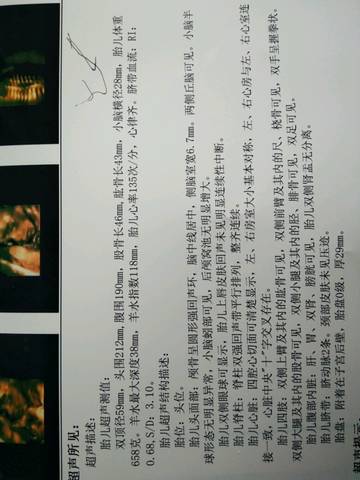 超声所见：
超声描述：
胎儿超声测值：
双顶径59mm，头围212mm，腹围190mm，股骨长46mm，肱骨长43mm，小脑横径28mm，胎儿体重
658克，羊水最大深度38mm，羊水指数118mm，胎儿心率135次/分，心律齐。脐带血流：RI：
0.68，S/D：3.10。
胎儿超声结构描述：
胎位：头位。
胎儿头面部：颅骨呈圆形强回声环，脑中线居中，侧脑室宽6.7mm。两侧丘脑可见。小脑半
球形态无明显异常，小脑蚓部可见，后颅窝池无明显增大。
胎儿双侧眼球可显示，胎儿上唇皮肤回声未见明显连续性中断。
胎儿脊柱：脊柱双强回声带平行排列，整齐连续。
胎儿心脏：四腔心切面可清楚显示，左、右房室大小基本对称，左、右心房与左、右心室连
接一致，心脏中央"十"字交叉存在。
胎儿四肢：双侧上臂及其内的肱骨可见，双侧前臂及其内的尺、桡骨可见，双手呈握拳状。
双侧大腿及其内的股骨可见，双侧小腿及其内的胫、腓骨可见，双足可见。
胎儿腹部内脏：肝、胃、双肾、膀胱可见，胎儿双侧肾盂无分离。
胎儿脐带：脐动脉2条，颈部皮肤未见压迹。
胎盘：附着在子宫后壁，胎盘0级，厚29mm。
超声提示：